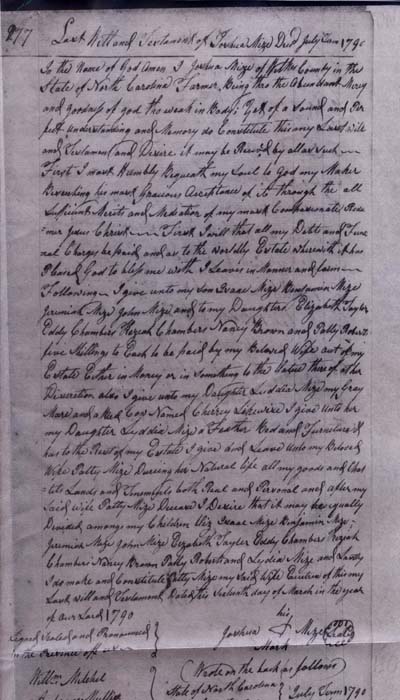 277
Last Will and Testament of Joshua Mize Decd July Term 1790
In the Name of God Amen I Joshua Mize of Wilkes County in the
State of North Carolina Farmer, Being thro the Abundant Mercy
and goodness of god tho weak in Body; Yet of a Sound and Per
fect understanding and Memory do Constitute this my Last Will
and Testament and Desire it may be Receivd by all as Such
First I most Humbly Bequeath my Soul to God my Maker
Beseeching his most Gracious Acceptance of it through the all
Sufficient Merits and Mediation of my most Compassionate Rede
=mer Jesus Christ First I will that all my Debts and Fune
ral Charges be paid and as to the worldly Estate wherewith it has
Pleased God to bless me with I Leave in Manner and form
Following I give unto my Son Isaac Mize Benjamin Mize
Jeremia Mize John Mize and to my Daughters Elizabeth Tayler
Eddy Chambers Keziah Chambers Nancy Brown and Patty Roberts
five Shillings to Each to be paid by my Beloved Wife out of my
Estate Either in Money or in Something to the Value there of at her
Discretion also I give unto my Daughter Lyddia Mize my Gray
Mare and a Red Cow Named Cherrey Likewise I give unto her
my Daughter Lyddia Mize a Feather Bed and Furniture &
has to the Rest of my Estate I give and Leave Unto my Beloved
Wife Patty Mize Dureing her Natural life all my goods and Chat
=tels Lands and Tenements both Real and Personal and after my
Said wife Patty Mize Decease I Desire that it may be equally
Devided amongs my Children Viz Isaac Mize Benjamin Mize
Jeremiah Mize John Mize Elizabeth Tayler Eddy Chambers Keziah
Chambers Nancy Brown Patty Roberts and Lydia Mize and Lastly
I do make and Constitute Patty Mize my Said Wife Executrix of this my
Last will and Testament Dated this day of March in the year
of our Lord 1790
Signed Sealed and Pronounced his
In the Presence of us Joshua Mize Seal
Mark
Willm Mitchel (Wrote on the back as follows)
State of North Carolina July Term 1790